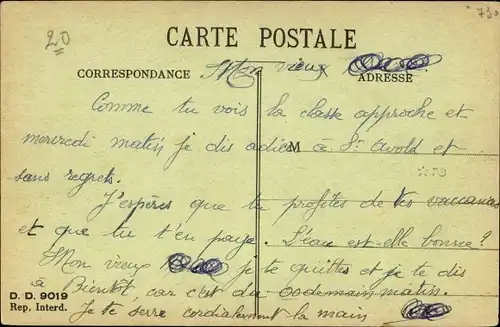 20
CARTE POSTALE
CORRESPONDANCE
ADRESSE
Mon vieux
Comme tu vois la classe approche et
mercredi matin je dis adieu à St Avold et
sans regrets.
M
J'espères que tu profites de tes vacances
et que tu t'en paye. L'eau est-elle bonne?
Mon vieux je te quittes et je te dis
à Bientôt, car c'est du demain matin.
Je te serre cordialement la main
D. D. 9019
Rep, Interd.